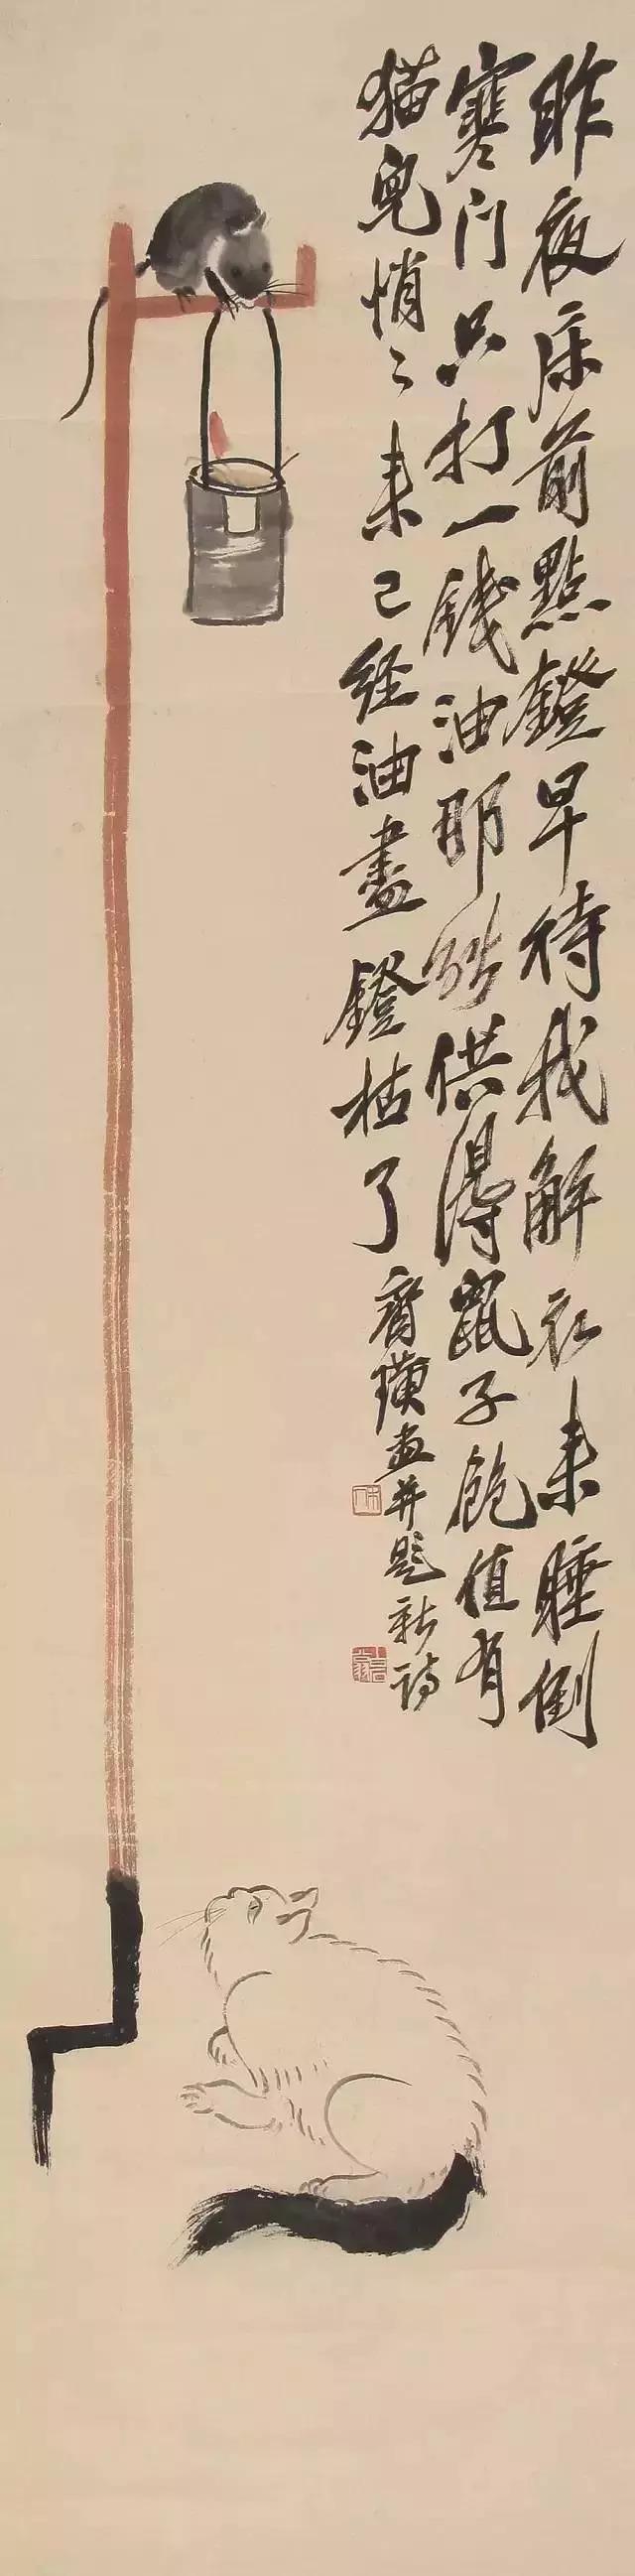 昨夜床前點鐙早待我解衣来睡倒
寒门只打一錢油那能供得鼠子飽值有
猫兒悄〻来已经油盡鐙枯了
齊璜畫并题新詩